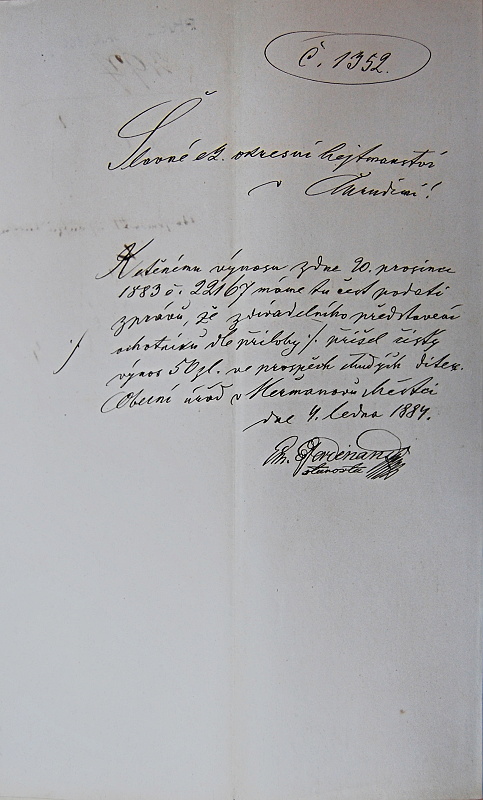 Č. 1352.
Slavné ck. okresní hejtmanství
v Chrudimi!
K ctěnému výnosu z dne 20. prosince
1883 č. 22167 máme tu čest podati
zprávu, že z divadelního představení
ochotníků dle přílohy /. přišel čistý
výnos 50 zl. ve prospěch chudých dítek.
Obecní úřad v Heřmanově Městci
dne 4. ledna 1884.
Ferdinand
starosta